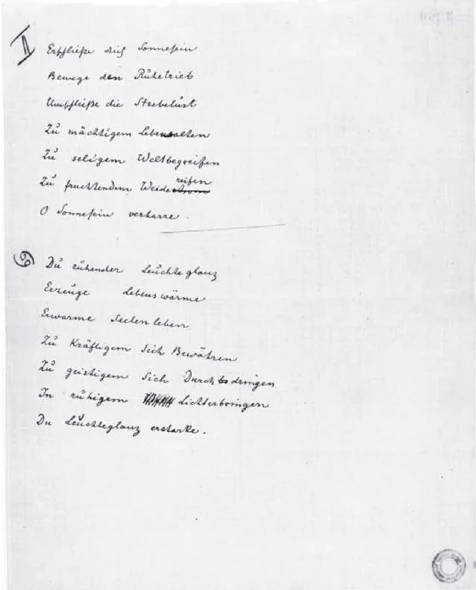 ♊
Erschließe dich Sonnesein
Bewege den Ruhetrieb
Umschließe die Strebelust
Zu mächtigem Lebewalten
Zu seligem Weltbegreifen
Zu fruchtendem Werdereifen
O Sonnesein verharre.
♋
Du ruhender Leuchteglanz
Erzeuge Lebenswärme
Erwärme Seelenleben
Zu kräftigem Sich Bewähren
Zu geistigem Sich Durchdringen
In ruhigem Lichterbringen
Du Leuchteglanz erstarke.